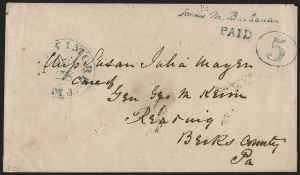 James M. Buchanan
PAID 5
Miss Susan Julia Mayer
Care of
Gen Geo M Keim
Reading
Berks County
Pa